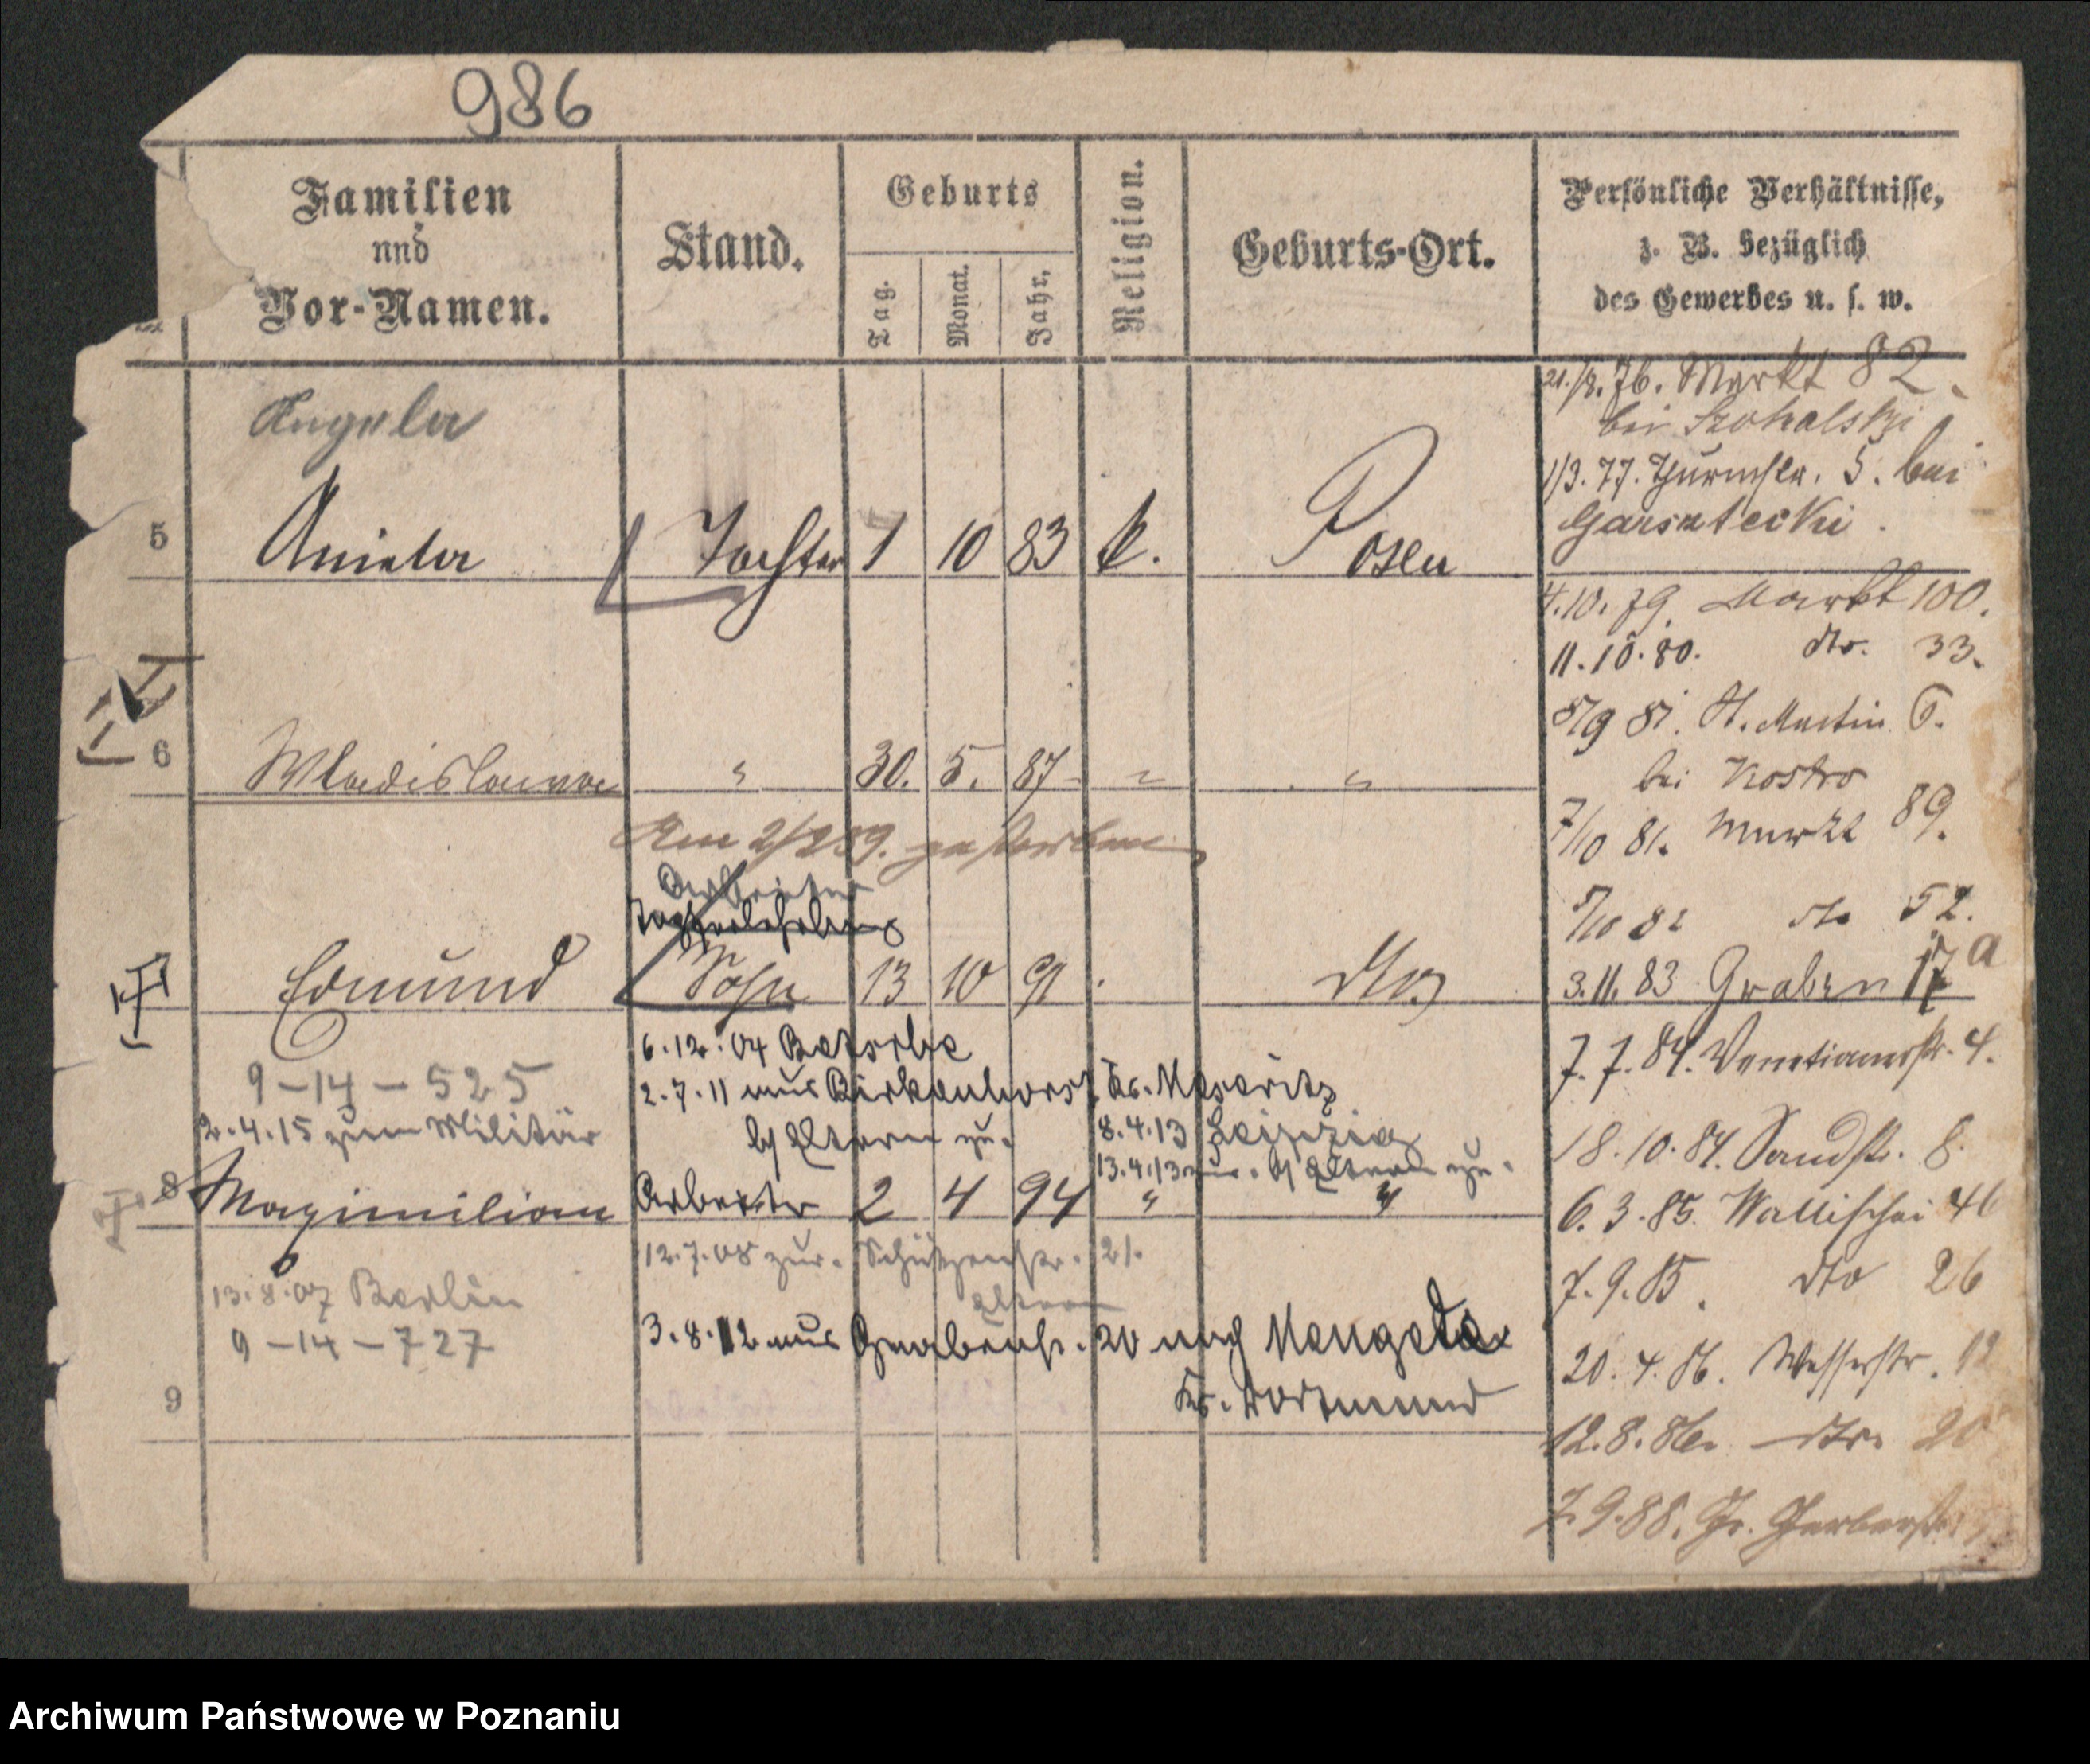 986
Familien
und
Vor-Namen.
Stand.
Geburts
Tag.
Monat.
Jahr.
Religion.
Geburts-Ort.
Persönliche Verhältnisse,
z. B. bezüglich
des Gewerbes u. s. w.
Angela
5 Aniela Tochter 1 10 83 k. Posen
6 Wladislawa " 30. 5. 87 " "
Am 2/2 89. gestorben
Arbeiter
Edmund Sohn 13 10 91 dto
6.12.04 Betsche
9-14-525
2.7.11 aus Birkenhorst Kr. Meseritz
2.4.15 zum Militär
b/ Eltern zu.
8.4.13 Leipzig
13.4.13 zur. b/ Eltern zu.
8 Maximilian Arbeiter 2 4 94 " "
12.7.08 zur. Schützenstr. 21.
Eltern
13.8.07 Berlin
9-14-727
3.8.12 aus Grabenstr. 20 nach Mengede
Kr. Dortmund
9
21./8.76. Markt 82.
bei
1/3.77. Thurmstr. 5. bei
4.10.79. Markt 100.
11.10.80. dto. 33.
8/9 81. St. Martin 6.
bei Kostro
7/10 81. Markt 89.
7/10 82 dto 52.
3.11.83 Graben 17 a
7.7.84. Venetianerstr. 4.
18.10.84. Sandstr. 8.
6.3.85. Wallischei 46
7.9.85. dto 26
20.4.86. Wasserstr. 12
12.8.86. dto. 20
7.9.88. Gr. Gerberstr.
Archiwum Państwowe w Poznaniu